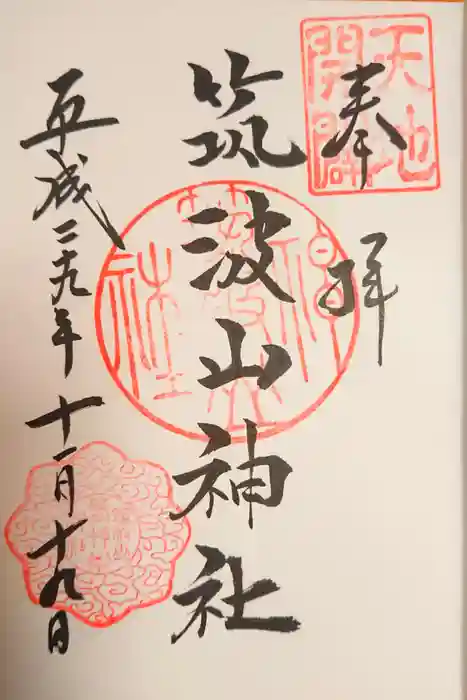 奉拝
天地開闢
筑波山神社
平成二十九年十一月十九日